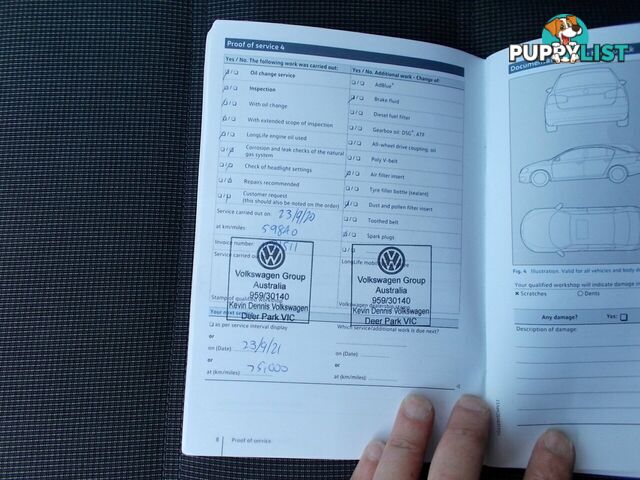 PUPPYLIST
Proof of service 4
Yes / No. The following work was carried out:
Oil change service
Inspection
With oil change
With extended scope of inspection
LongLife engine oil used
Corrosion and leak checks of the natural
gas system
Check of headlight settings
Repairs recommended
Customer request
(this should also be noted on the order)
Service carried out on 23/9/20
at km/miles
Invoice number
Service carried out
Volkswagen Group
Australia
959/30140
Kevin Dennis Volkswagen
Deer Park VIC
Stamp of qualified workshop
Your next service
as per service interval display
or
on (Date) 23/9/21
or
at (km/miles) 75,000
Yes / No. Additional work - Change of:
AdBlue®
Brake fluid
Diesel fuel filter
Gearbox oil: DSG®, ATF
All-wheel drive coupling, oil
Poly V-belt
Air filter insert
Tyre filler bottle (sealant)
Dust and pollen filter insert
Toothed belt
Spark plugs
LongLife mobility
Volkswagen Group
Australia
959/30140
Kevin Dennis Volkswagen
Deer Park VIC
Which service/additional work is due next?
on (Date)
or
at (km/miles)
8 Proof of service
Fig. 4 Illustration. Valid for all vehicles and body
Your qualified workshop will indicate damage
Scratches Dents
Any damage? Yes
Description of damage: